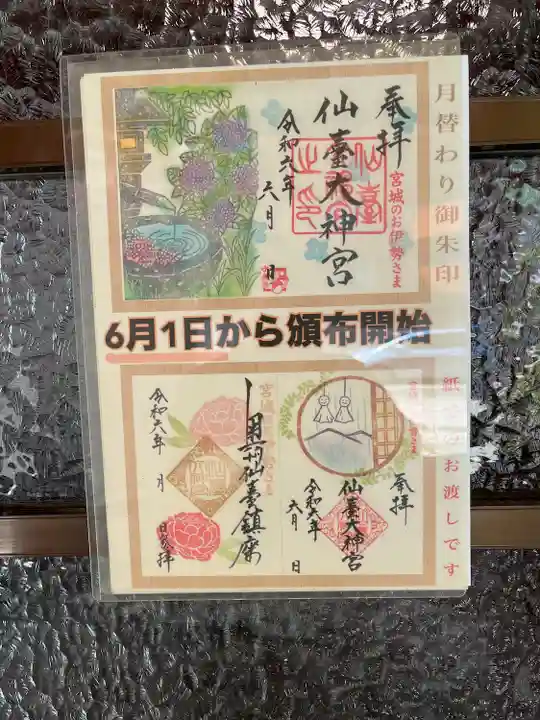 月替わり御朱印
奉拝
宮城のお伊勢さま
仙臺大神宮
令和六年
六月 日
6月1日から頒布開始
奉拝
仙臺大神宮
令和六年
六月 日
仙臺鎮座
令和六年 月 日参拝
お渡しです